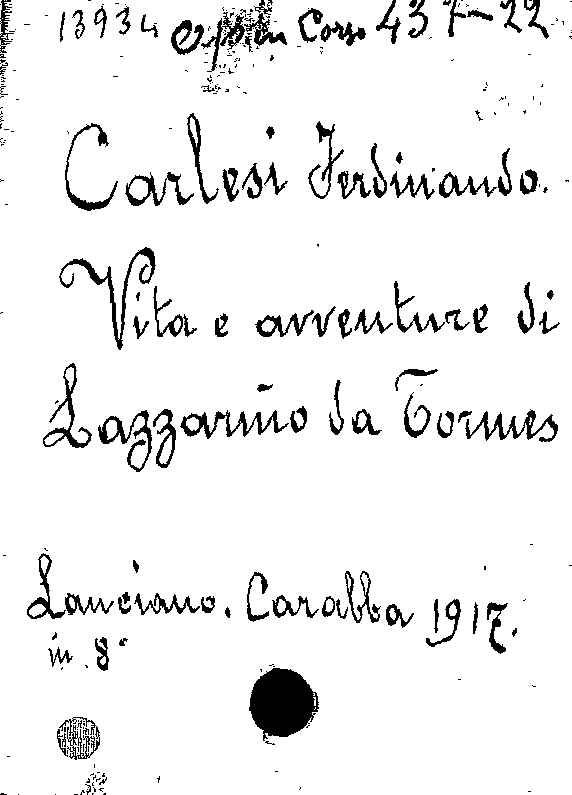 13934 in Corso 437-22
Carlesi Ferdinando.
Vita e avventure di
Lazzarino da Tormes
Lanciano. Carabba 1917.
in 8°